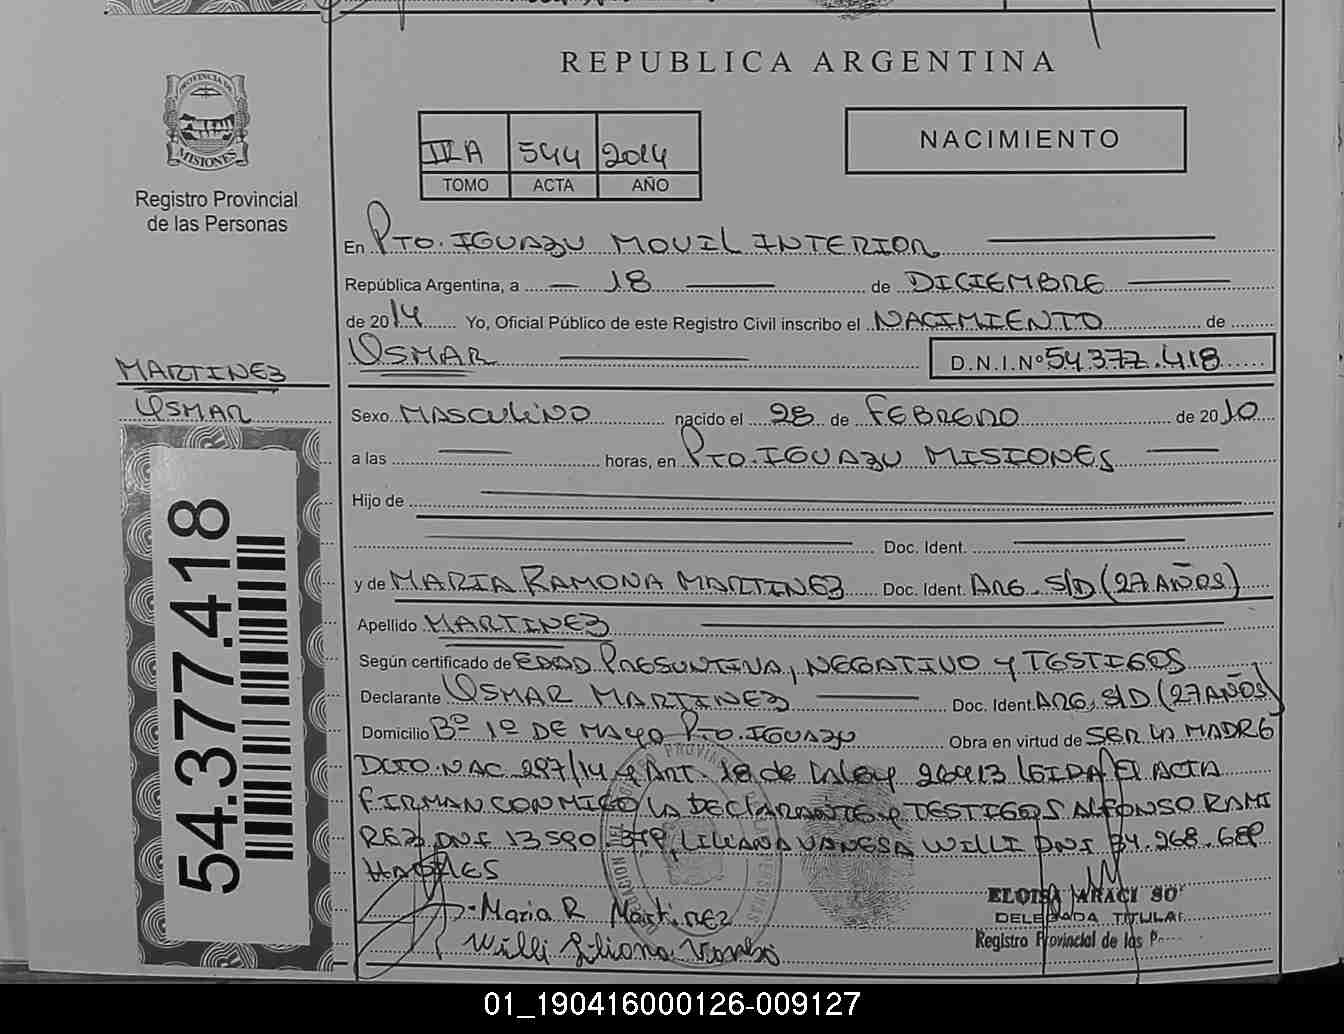 REPUBLICA ARGENTINA
PROVINCIA DE
MISIONES
Registro Provincial
de las Personas
IIA 544 2014
TOMO ACTA AÑO
NACIMIENTO
En PTO. IGUAZU MOVIL INTERIOR
República Argentina, a 18 de DICIEMBRE
de 2014 Yo, Oficial Público de este Registro Civil inscribo el NACIMIENTO de
OSMAR
D.N.I.Nº 54.377.418
MARTINEZ
OSMAR
Sexo MASCULINO nacido el 28 de FEBRERO de 2010
a las horas, en PTO. IGUAZU MISIONES
Hijo de
Doc. Ident.
y de MARIA RAMONA MARTINEZ Doc. Ident. ARG. S/D (27 AÑOS)
Apellido MARTINEZ
Según certificado de EDAD PRESUNTIVA, NEGATIVO Y TESTIGOS
Declarante OSMAR MARTINEZ Doc. Ident. ARG. S/D (27 AÑOS)
Domicilio Bº 1º DE MAYO PTO. IGUAZU Obra en virtud de SER LA MADRE
DCTO. NAC. 297/14 y ART. 18 de la ley 26413 LEIDA EL ACTA
FIRMAN CONMIGO LA DECLARANTE y TESTIGOS ALFONSO RAMI
REZ DNI 13590 LILIANA VANESA WILLI DNI 34.268.689
HABILES
Maria R Martinez
Willi Liliana Vanesa
ELOISA ARACI SO
DELEGADA TITULAR
Registro Provincial de las P
54.377.418
01_190416000126-009127